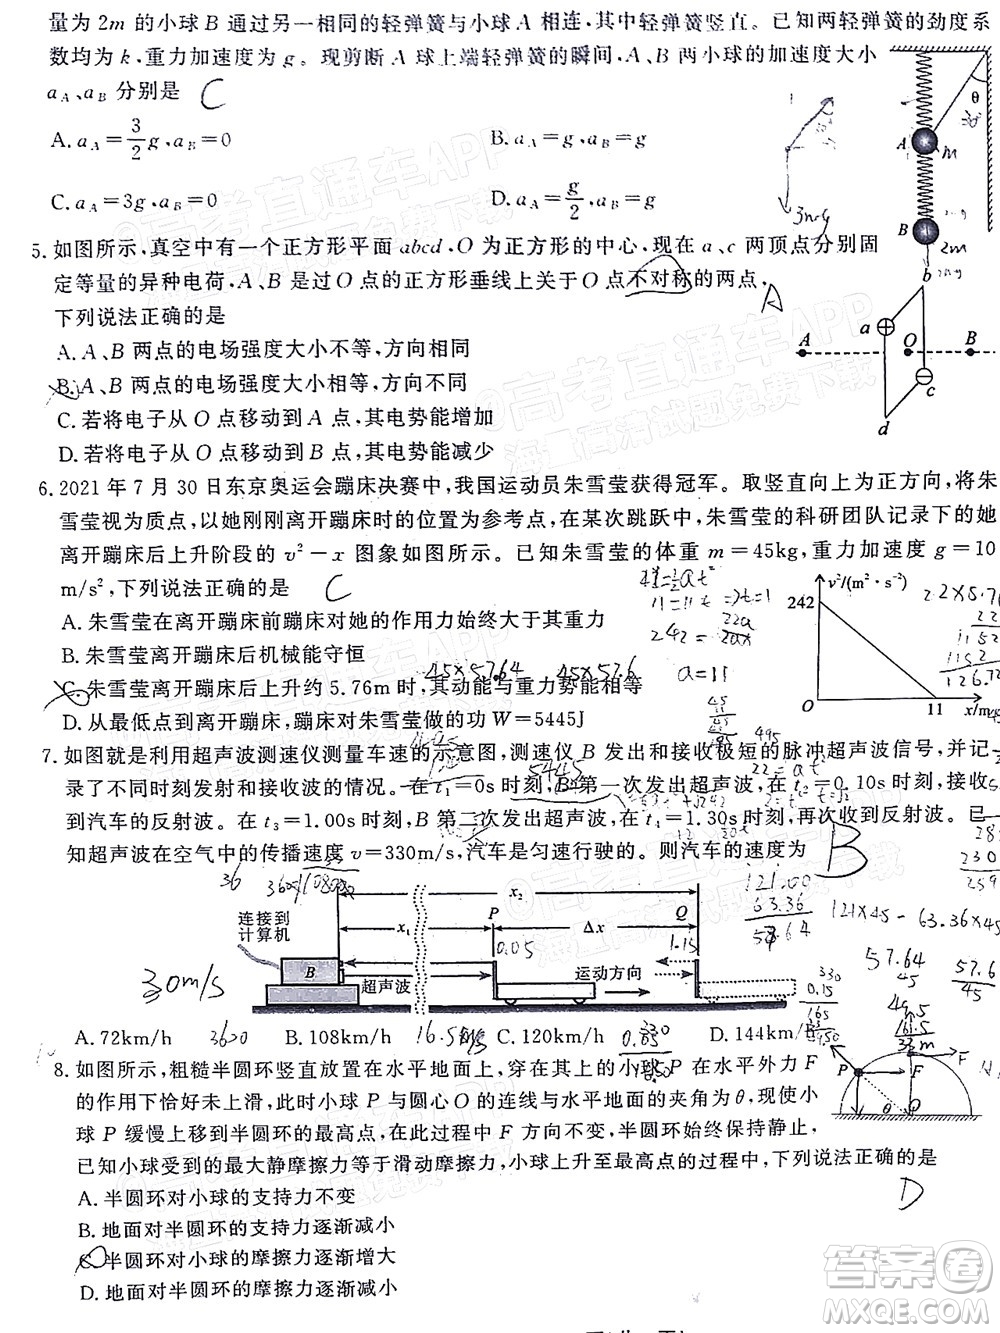 量为 2m 的小球 B 通过另一相同的轻弹簧与小球 A 相连,其中轻弹簧竖直。已知两轻弹簧的劲度系
数均为 k,重力加速度为 g。现剪断 A 球上端轻弹簧的瞬间,A、B 两小球的加速度大小
aA、aB 分别是 C
A. aA=3/2 g,aB=0
B. aA=g,aB=0
C. aA=3g,aB=0
D. aA=g/2,aB=g
θ
A
m
B
2m
3mg
5. 如图所示,真空中有一个正方形平面 abcd,O 为正方形的中心,现在 a、c 两顶点分别固
定等量的异种电荷,A、B是过O点的正方形垂线上关于O点不对称的两点,
下列说法正确的是 A
A. A、B 两点的电场强度大小不等,方向相同
B. A、B 两点的电场强度大小相等,方向不同
C. 若将电子从 O 点移动到 A 点,其电势能增加
D. 若将电子从 O 点移动到 B 点,其电势能减少
b
a
A
O
B
c
d
6. 2021 年 7 月 30 日东京奥运会蹦床决赛中,我国运动员朱雪莹获得冠军。取竖直向上为正方向,将朱
雪莹视为质点,以她刚刚离开蹦床时的位置为参考点,在某次跳跃中,朱雪莹的科研团队记录下的她
离开蹦床后上升阶段的 v²-x 图象如图所示。已知朱雪莹的体重 m=45kg,重力加速度 g=10
m/s²,下列说法正确的是 C
A. 朱雪莹离开蹦床前蹦床对她的作用力始终大于其重力
B. 朱雪莹离开蹦床后机械能守恒
C. 朱雪莹离开蹦床后上升约 5.76m 时,其动能与重力势能相等
D. 从最低点到离开蹦床,蹦床对朱雪莹做的功 W=5445J
v²/(m²·s⁻²)
242
O
11
x/m
a=11
45×57.64
45×57.6
7. 如图就是利用超声波测速仪测量车速的示意图,测速仪 B 发出和接收极短的脉冲超声波信号,并记
录了不同时刻发射和接收波的情况。在 t₁=0s 时刻,B 第一次发出超声波,在 t₂=0.10s 时刻,接收
到汽车的反射波。在 t₃=1.00s 时刻,B 第二次发出超声波,在 t₄=1.30s 时刻,再次收到反射波。已
知超声波在空气中的传播速度 v=330m/s,汽车是匀速行驶的。则汽车的速度为 B
连接到
计算机
B
超声波
x₂
x₁
P
Δx
Q
0.05
1.15
运动方向
30m/s
121.00
63.36
121×45-63.36×45
57.64
45
57.6
45
A. 72km/h
B. 108km/h
C. 120km/h
D. 144km/h
8. 如图所示,粗糙半圆环竖直放置在水平地面上,穿在其上的小球 P 在水平外力 F
的作用下恰好未上滑,此时小球 P 与圆心 O 的连线与水平地面的夹角为 θ,现使小
球 P 缓慢上移到半圆环的最高点,在此过程中 F 方向不变,半圆环始终保持静止,
已知小球受到的最大静摩擦力等于滑动摩擦力,小球上升至最高点的过程中,下列说法正确的是
D
A. 半圆环对小球的支持力不变
B. 地面对半圆环的支持力逐渐减小
C. 半圆环对小球的摩擦力逐渐增大
D. 地面对半圆环的摩擦力逐渐减小
P
F
F
θ
O
高考直通车APP
答案圈
MXQE.COM